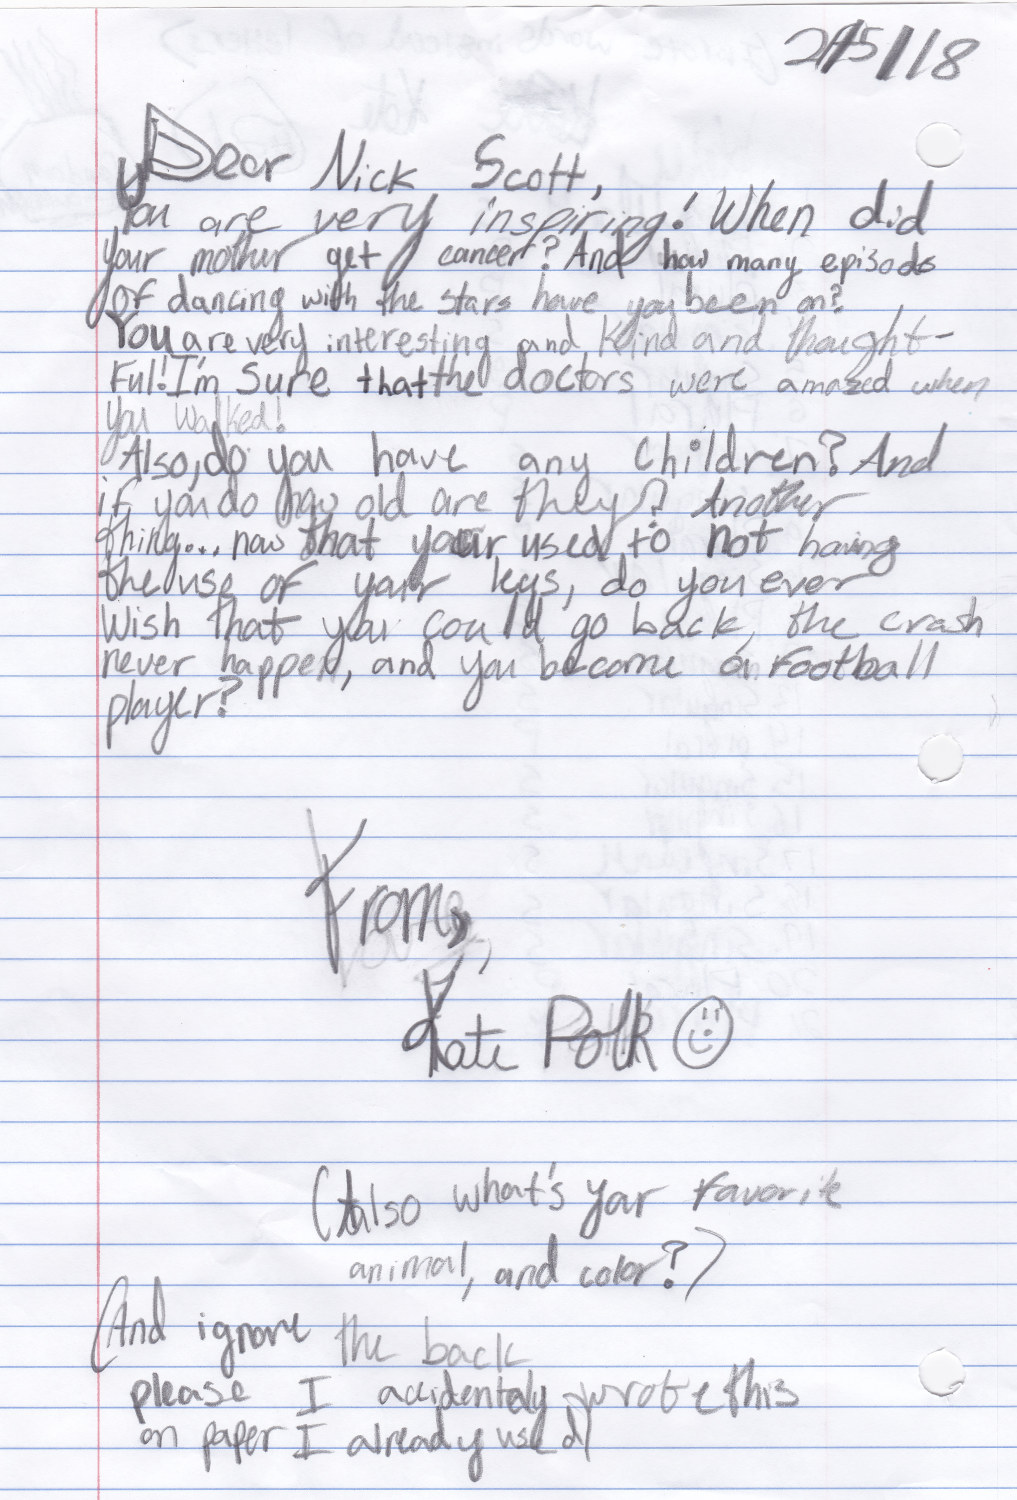 2/5/18
Dear Nick Scott,
You are very inspiring! When did
your mother get cancer? And how many episods
of dancing with the stars have you been on?
You are very interesting and kind and thought-
ful! I'm sure that the doctors were amazed when
you walked!
Also, do you have any children? And
if you do how old are they? Another
thing... now that your used to not having
the use of your legs, do you ever
wish that you could go back, the crash
never happen, and you become a football
player?
From,
Kate Polk
(Also what's your favorite
animal, and color?)
(And ignore the back
please I accidentaly wrote this
on paper I already used)